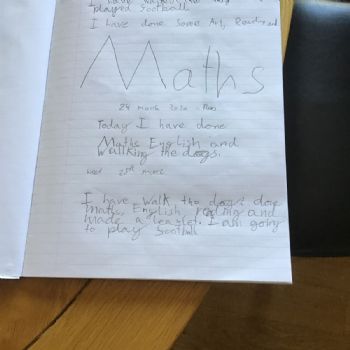 played football
I have done some Art, Read and
Maths
24 march 2020
Today I have done
Maths English and
walking the dogs.
25th
I have walk the dogs done
Maths, English, reading and
made a leaflet. I am going
to play football